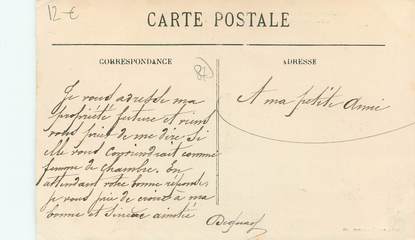 12 €
CARTE POSTALE
CORRESPONDANCE
ADRESSE
Je vous adresse ma
propriété future et viens
vous prier de me dire si
elle vous conviendrait comme
femme de chambre. En
attendant votre bonne réponse,
je vous prie de croire à ma
bonne et sincère amitié
A ma petite Amie